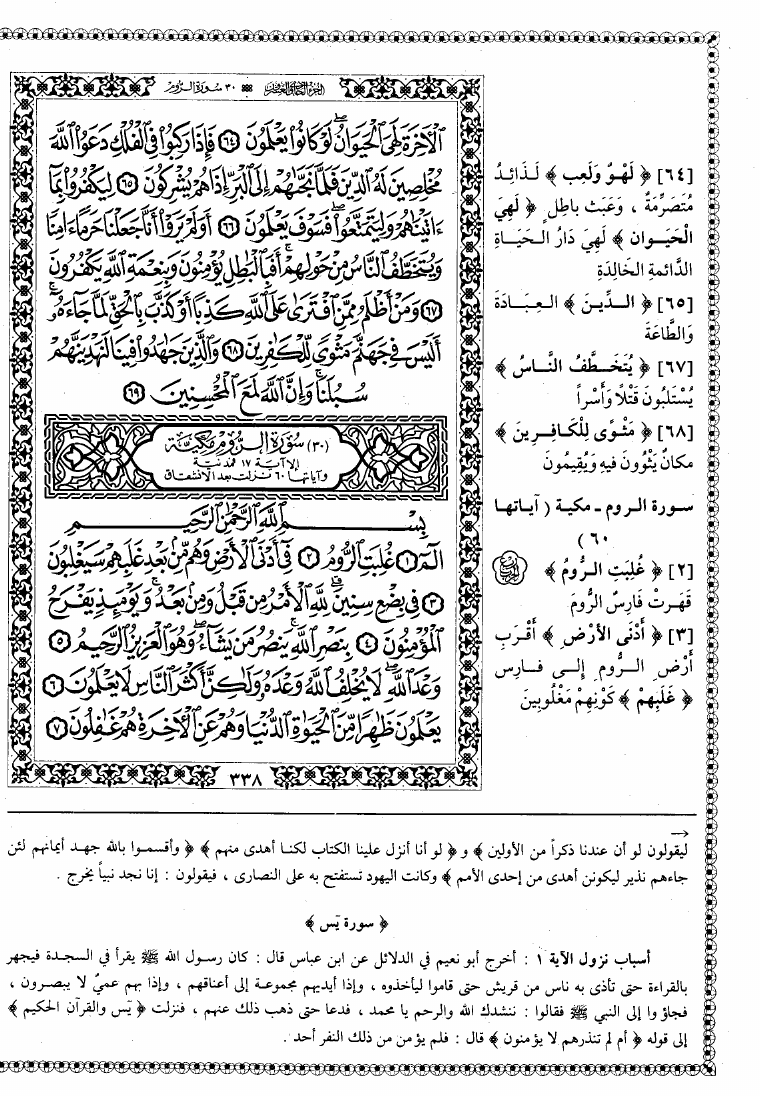 الجزء الحادي والعشرون ٣٠ سورة الروم
ٱلْأَخِرَةَ لَهِىَ ٱلْحَيَوَانُ ۚ لَوْ كَانُوا۟ يَعْلَمُونَ ٦٤ فَإِذَا رَكِبُوا۟ فِى ٱلْفُلْكِ دَعَوُا۟ ٱللَّهَ
مُخْلِصِينَ لَهُ ٱلدِّينَ فَلَمَّا نَجَّىٰهُمْ إِلَى ٱلْبَرِّ إِذَا هُمْ يُشْرِكُونَ ٦٥ لِيَكْفُرُوا۟ بِمَا
ءَاتَيْنَٰهُمْ وَلِيَتَمَتَّعُوا۟ ۖ فَسَوْفَ يَعْلَمُونَ ٦٦ أَوَلَمْ يَرَوْا۟ أَنَّا جَعَلْنَا حَرَمًا ءَامِنًا
وَيُتَخَطَّفُ ٱلنَّاسُ مِنْ حَوْلِهِمْ ۚ أَفَبِٱلْبَٰطِلِ يُؤْمِنُونَ وَبِنِعْمَةِ ٱللَّهِ يَكْفُرُونَ
٦٧ وَمَنْ أَظْلَمُ مِمَّنِ ٱفْتَرَىٰ عَلَى ٱللَّهِ كَذِبًا أَوْ كَذَّبَ بِٱلْحَقِّ لَمَّا جَآءَهُۥٓ ۚ
أَلَيْسَ فِى جَهَنَّمَ مَثْوًى لِّلْكَٰفِرِينَ ٦٨ وَٱلَّذِينَ جَٰهَدُوا۟ فِينَا لَنَهْدِيَنَّهُمْ
سُبُلَنَا ۚ وَإِنَّ ٱللَّهَ لَمَعَ ٱلْمُحْسِنِينَ ٦٩
(٣٠) سورة الروم مكية
إلا آية ١٧ فمدنية
وآياتها ٦٠ نزلت بعد الانشقاق
بِسْمِ ٱللَّهِ ٱلرَّحْمَٰنِ ٱلرَّحِيمِ
الٓمٓ ١ غُلِبَتِ ٱلرُّومُ ٢ فِىٓ أَدْنَى ٱلْأَرْضِ وَهُم مِّنۢ بَعْدِ غَلَبِهِمْ سَيَغْلِبُونَ
٣ فِى بِضْعِ سِنِينَ ۗ لِلَّهِ ٱلْأَمْرُ مِن قَبْلُ وَمِنۢ بَعْدُ ۚ وَيَوْمَئِذٍ يَفْرَحُ
ٱلْمُؤْمِنُونَ ٤ بِنَصْرِ ٱللَّهِ ۚ يَنصُرُ مَن يَشَآءُ ۖ وَهُوَ ٱلْعَزِيزُ ٱلرَّحِيمُ ٥
وَعْدَ ٱللَّهِ ۖ لَا يُخْلِفُ ٱللَّهُ وَعْدَهُۥ وَلَٰكِنَّ أَكْثَرَ ٱلنَّاسِ لَا يَعْلَمُونَ ٦
يَعْلَمُونَ ظَٰهِرًا مِّنَ ٱلْحَيَوٰةِ ٱلدُّنْيَا وَهُمْ عَنِ ٱلْأَخِرَةِ هُمْ غَٰفِلُونَ ٧
٣٣٨
[٦٤] ﴿ لَهْوٌ وَلَعِب ﴾ لَذَائِدُ
مُتَصَرِّمَةٌ ، وَعَبَث بَاطِلٍ ﴿ لَهِيَ
الْحَيَـوان ﴾ لَهِيَ دَارُ الـحَيَـاةِ
الدَّائمةِ الخَالِدَةِ
[٦٥] ﴿ الـدِّينَ ﴾ العِبَـادَةَ
وَالطَّاعَةَ
[٦٧] ﴿ يُتَخَـطَّفُ النَّـاسُ ﴾
يُسْتَلَبُونَ قَتْلاً وَأَسْراً
[٦٨] ﴿ مَثْوًى لِلْكَـافِـرِينَ ﴾
مَكانٌ يَثْوُونَ فيهِ وَيُقِيمُونَ
سورة الروم ـ مكية ( آياتها
٦٠ )
[٢] ﴿ غُلِبَتِ الرُّومُ ﴾
قَهَرتْ فَارِسُ الرُّومَ
[٣] ﴿ أَدْنَى الأَرْضِ ﴾ أَقْرَبِ
أَرْضِ الـرُّومِ إلـى فـارِس
﴿ غَلَبِهِمْ ﴾ كَوْنِهِمْ مَغْلُوبِينَ
ليقولون لو أن عندنا ذكراً من الأولين ﴾ و ﴿ لو أنا أنزل علينا الكتاب لكنا أهدى منهم ﴾ ﴿ وأقسموا بالله جهد أيمانهم لئن
جاءهم نذير ليكونن أهدى من إحدى الأمم ﴾ وكانت اليهود تستفتح به على النصارى ، فيقولون : إنا نجد نبياً يخرج .
﴿ سورة يٓس ﴾
أسباب نزول الآية ١ : أخرج أبو نعيم في الدلائل عن ابن عباس قال : كان رسول الله ﷺ يقرأ في السجدة فيجهر
بالقراءة حتى تأذى به ناس من قريش حتى قاموا ليأخذوه ، وإذا أيديهم مجموعة إلى أعناقهم ، وإذا بهم عميٌ لا يبصرون ،
فجاؤوا إلى النبي ﷺ فقالوا : ننشدك الله والرحم يا محمد ، فدعا حتى ذهب ذلك عنهم ، فنزلت ﴿ يٓس والقرآن الحكيم ﴾
إلى قوله ﴿ أم لم تنذرهم لا يؤمنون ﴾ قال : فلم يؤمن من ذلك النفر أحد .